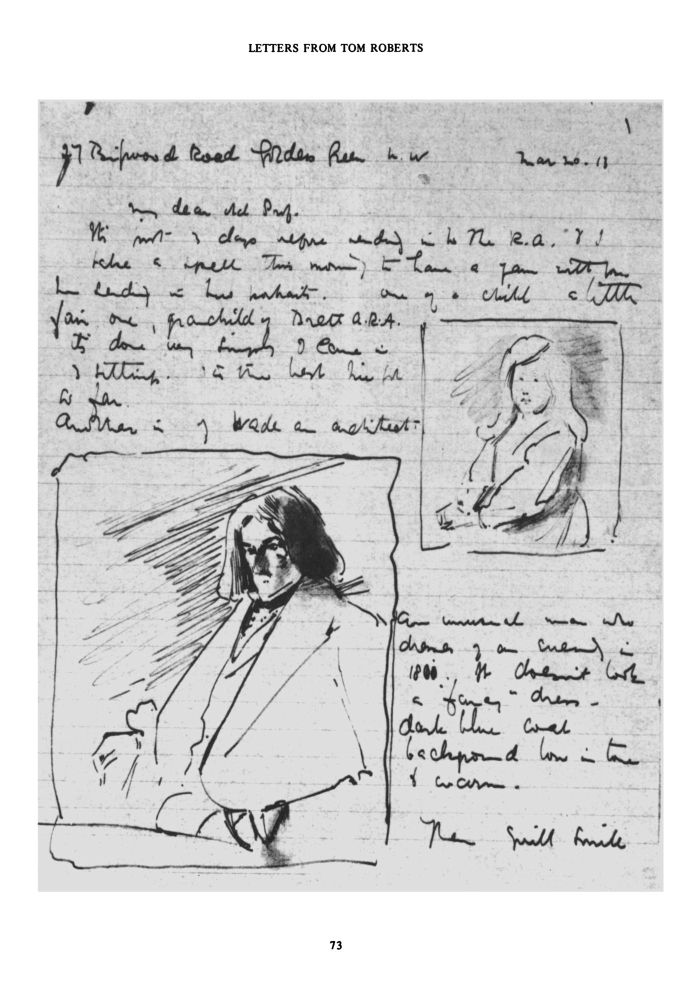 LETTERS FROM TOM ROBERTS
27 Road Golders Green N.W Mar 20. 13
My dear old Prof.
It's just 3 days before sending in to The R.A. & I
take a spell this morning to have a yarn with you
I'm sending in two portraits. one of a child a little
fair one, grandchild of Brett A.R.A.
it's done very simply I came in
3 sittings. it's the best
so far.
Another is of Wade an architect.
An unusual man who
dresses of an evening in
1800. It doesn't look
a "fancy" dress -
dark blue coat
background low in tone
& warm.
Then
73